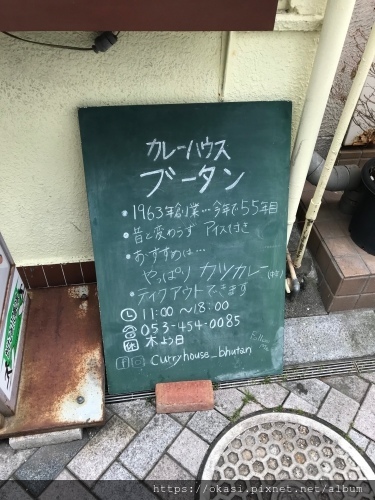 カレーハウス
ブータン
・1963年創業…今年で55年目
・昔と変わらず アイス付き
・おすすめは…
やっぱり カツカレー
・テイクアウトできます
11:00〜18:00
053-454-0085
木よう日
Follow
Curryhouse_bhutan
https://okasi.pixnet.net/album